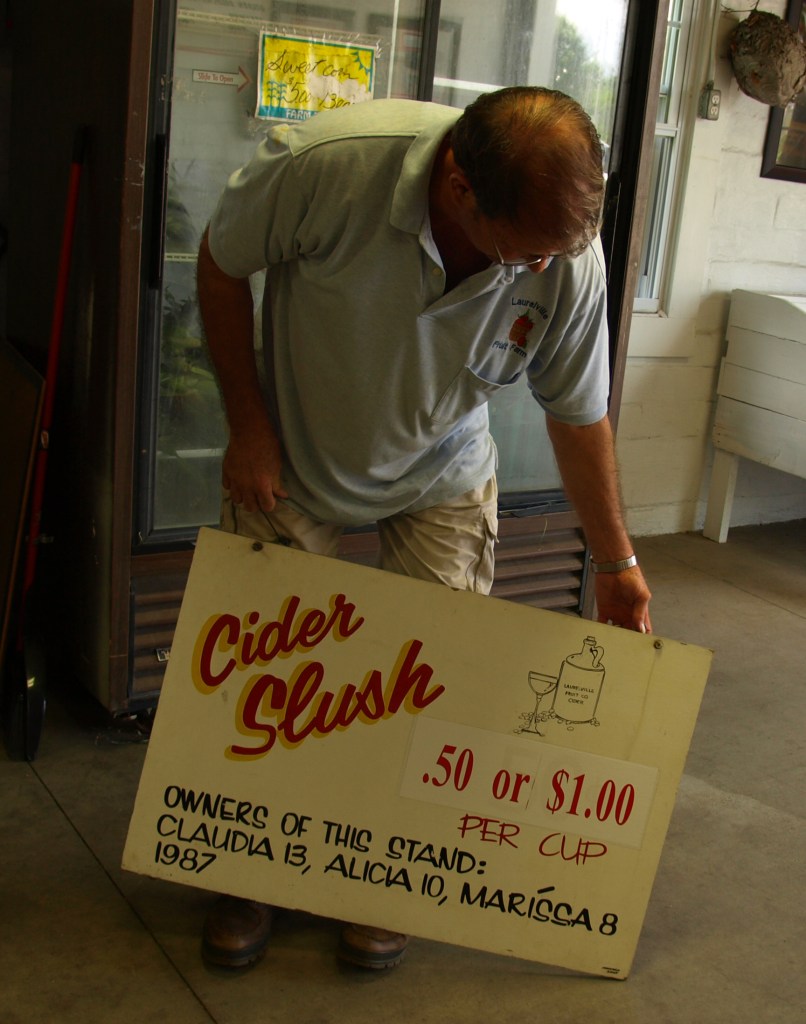 Slide To Open
Sweet Corn
FARM
Laurelville
Fruit Farm
Cider
Slush
LAURELVILLE
FRUIT CO.
CIDER
.50 or $1.00
PER CUP
OWNERS OF THIS STAND:
CLAUDIA 13, ALICIA 10, MARÍSSA 8
1987